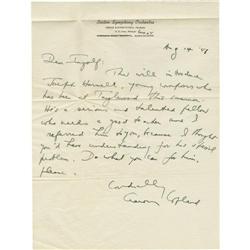 Boston Symphony Orchestra
Aug 14 '51
Dear Ingolf:
This will introduce
Joseph Horowitz, young composer who
has been at Tanglewood this summer.
He's a serious and talented fellow
who needs a good teacher and I
referred him to you, because I thought
you'd have understanding for his special
problem. Do what you can for him,
please.
Cordially
Aaron Copland